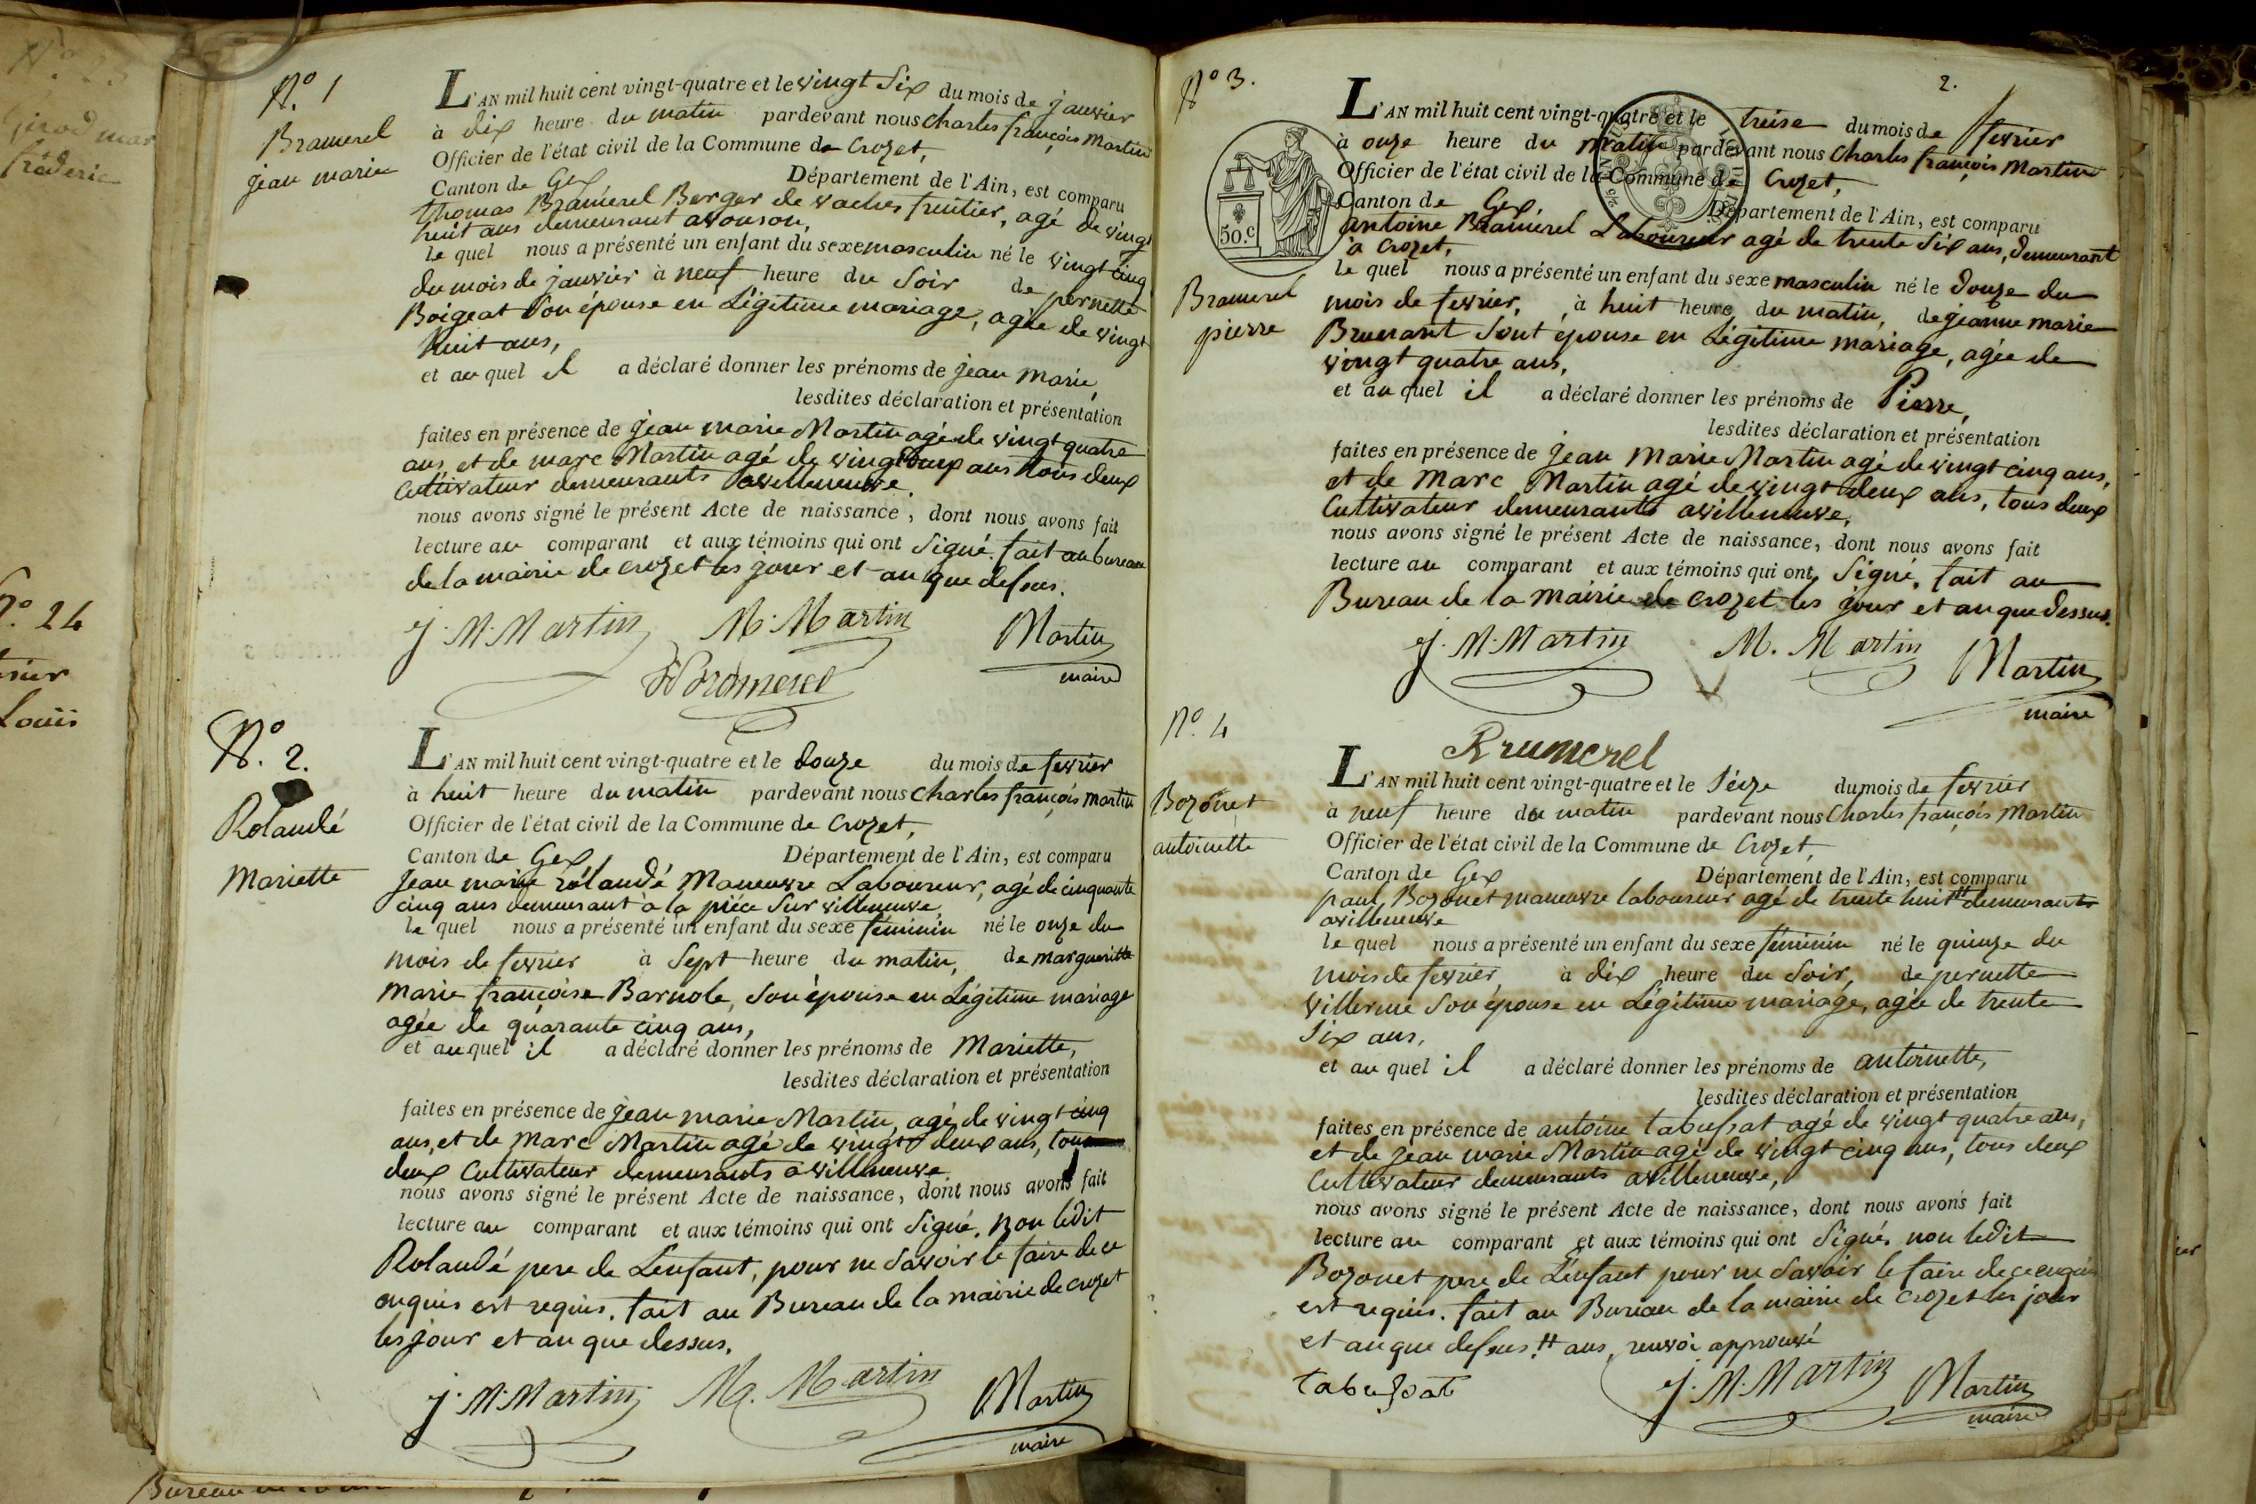 N.º 1
Bramerel
jean marie
L'AN mil huit cent vingt-quatre et le vingt Six du mois de janvier
à dix heure du matin pardevant nous charles françois Martin
Officier de l'état civil de la Commune de Crozet,
Canton de Gex Département de l'Ain, est comparu
thomas Bramerel Berger de vaches fruitier, agé de vingt
huit ans demeurant avouson,
le quel nous a présenté un enfant du sexe masculin né le vingt cinq
du mois de janvier à neuf heure du Soir de pernette
Boigeat Son épouse en Légitime mariage, agée de vingt
huit ans,
et au quel il a déclaré donner les prénoms de jean marie,
lesdites déclaration et présentation
faites en présence de jean marie Martin agé de vingt quatre
ans, et de marc Martin agé de vingt deux ans tous deux
Cultivateur demeurants avilleneuve.
nous avons signé le présent Acte de naissance, dont nous avons fait
lecture au comparant et aux témoins qui ont Signé. fait au bureau
de la mairie de crozet les jour et an que dessus.
J. M. Martin M. Martin Martin
maire
N.º 2.
Rolandé
Mariette
L'AN mil huit cent vingt-quatre et le douze du mois de fevrier
à huit heure du matin pardevant nous charles françois martin
Officier de l'état civil de la Commune de Crozet,
Canton de Gex Département de l'Ain, est comparu
Jean marie rolandé Maneuvre Laboureur, agé de cinquante
cinq ans demeurant a la pièce Sur villeneuve
le quel nous a présenté un enfant du sexe féminin né le onze du
mois de fevrier à Sept heure du matin, de margueritte
Marie françoise Barnole, Son épouse en Légitime mariage
agée de quarante cinq ans,
et au quel il a déclaré donner les prénoms de Mariette,
lesdites déclaration et présentation
faites en présence de jean marie Martin, agé de vingt cinq
ans, et de Marc Martin agé de vingt deux ans, tous
deux Cultivateur demeurants a villeneuve.
nous avons signé le présent Acte de naissance, dont nous avons fait
lecture au comparant et aux témoins qui ont Signé. non ledit
Rolandé pere de L'enfant, pour ne Savoir le faire de ce
enquis est requis. fait au Bureau de la mairie de crozet
les jour et an que dessus.
J. M. Martin M. Martin Martin
maire
N.º 3.
2.
50.c
Bramerel
pierre
L'AN mil huit cent vingt-quatre et le treise du mois de fevrier
à onze heure du matin pardevant nous Charles françois Martin
Officier de l'état civil de la Commune de Crozet,
Canton de Gex, Département de l'Ain, est comparu
antoine Bramerel Laboureur agé de trente Six ans, demeurant
à Crozet,
le quel nous a présenté un enfant du sexe masculin né le douze du
mois de fevrier, à huit heure du matin, de jeanne marie
Brunant Sont épouse en Légitime mariage, agée de
vingt quatre ans,
et au quel il a déclaré donner les prénoms de Pierre,
lesdites déclaration et présentation
faites en présence de jean Marie Martin agé de vingt cinq ans,
et de Marc Martin agé de vingt deux ans, tous deux
Cultivateur demeurants avilleneuve,
nous avons signé le présent Acte de naissance, dont nous avons fait
lecture au comparant et aux témoins qui ont Signé. fait au
Bureau de la Mairie de crozet les jour et an que dessus.
J. M. Martin M. Martin Martin
maire
N.º 4
Brumerel
Bozonet
antoinette
L'AN mil huit cent vingt-quatre et le Séize du mois de fevrier
à neuf heure du matin pardevant nous Charles françois Martin
Officier de l'état civil de la Commune de Crozet,
Canton de Gex Département de l'Ain, est comparu
paul Bozonet maneuvre laboureur agé de trente huit # demeurants
avilleneuve
le quel nous a présenté un enfant du sexe féminin né le quinze du
mois de fevrier, à dix heure du Soir, de pernette
villerme Son épouse en Légitime mariage, agée de trente
Six ans,
et au quel il a déclaré donner les prénoms de antoinette,
lesdites déclaration et présentation
faites en présence de antoine tabussat agé de vingt quatre ans,
et de jean marie Martin agé de vingt cinq ans, tous deux
Cultivateur demeurants avilleneuve,
nous avons signé le présent Acte de naissance, dont nous avons fait
lecture au comparant et aux témoins qui ont Signé. non ledit
Bozonet pere de L'enfant pour ne Savoir le faire de ce enquis
est requis. fait au Bureau de la mairie de crozet les jour
et an que dessus. # ans, renvoi approuvé
tabussat J. M. Martin Martin
maire
N.º 24
Louis